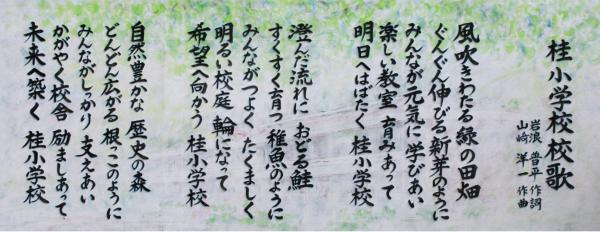 桂小学校校歌
岩浪 普平 作詞
山崎 洋一 作曲
風吹きわたる 緑の田畑
ぐんぐん伸びる 新芽のように
みんなが元気に 学びあい
楽しい教室 育みあって
明日へはばたく 桂小学校
澄んだ流れに おどる鮭
すくすく育つ 稚魚のように
みんなかつよく たくましく
明るい校庭 輪になって
希望へ向かう 桂小学校
自然豊かな 歴史の森
どんどん広がる 根っこのように
みんながしっかり 支えあい
かがやく校舎 励ましあって
未来へ築く 桂小学校